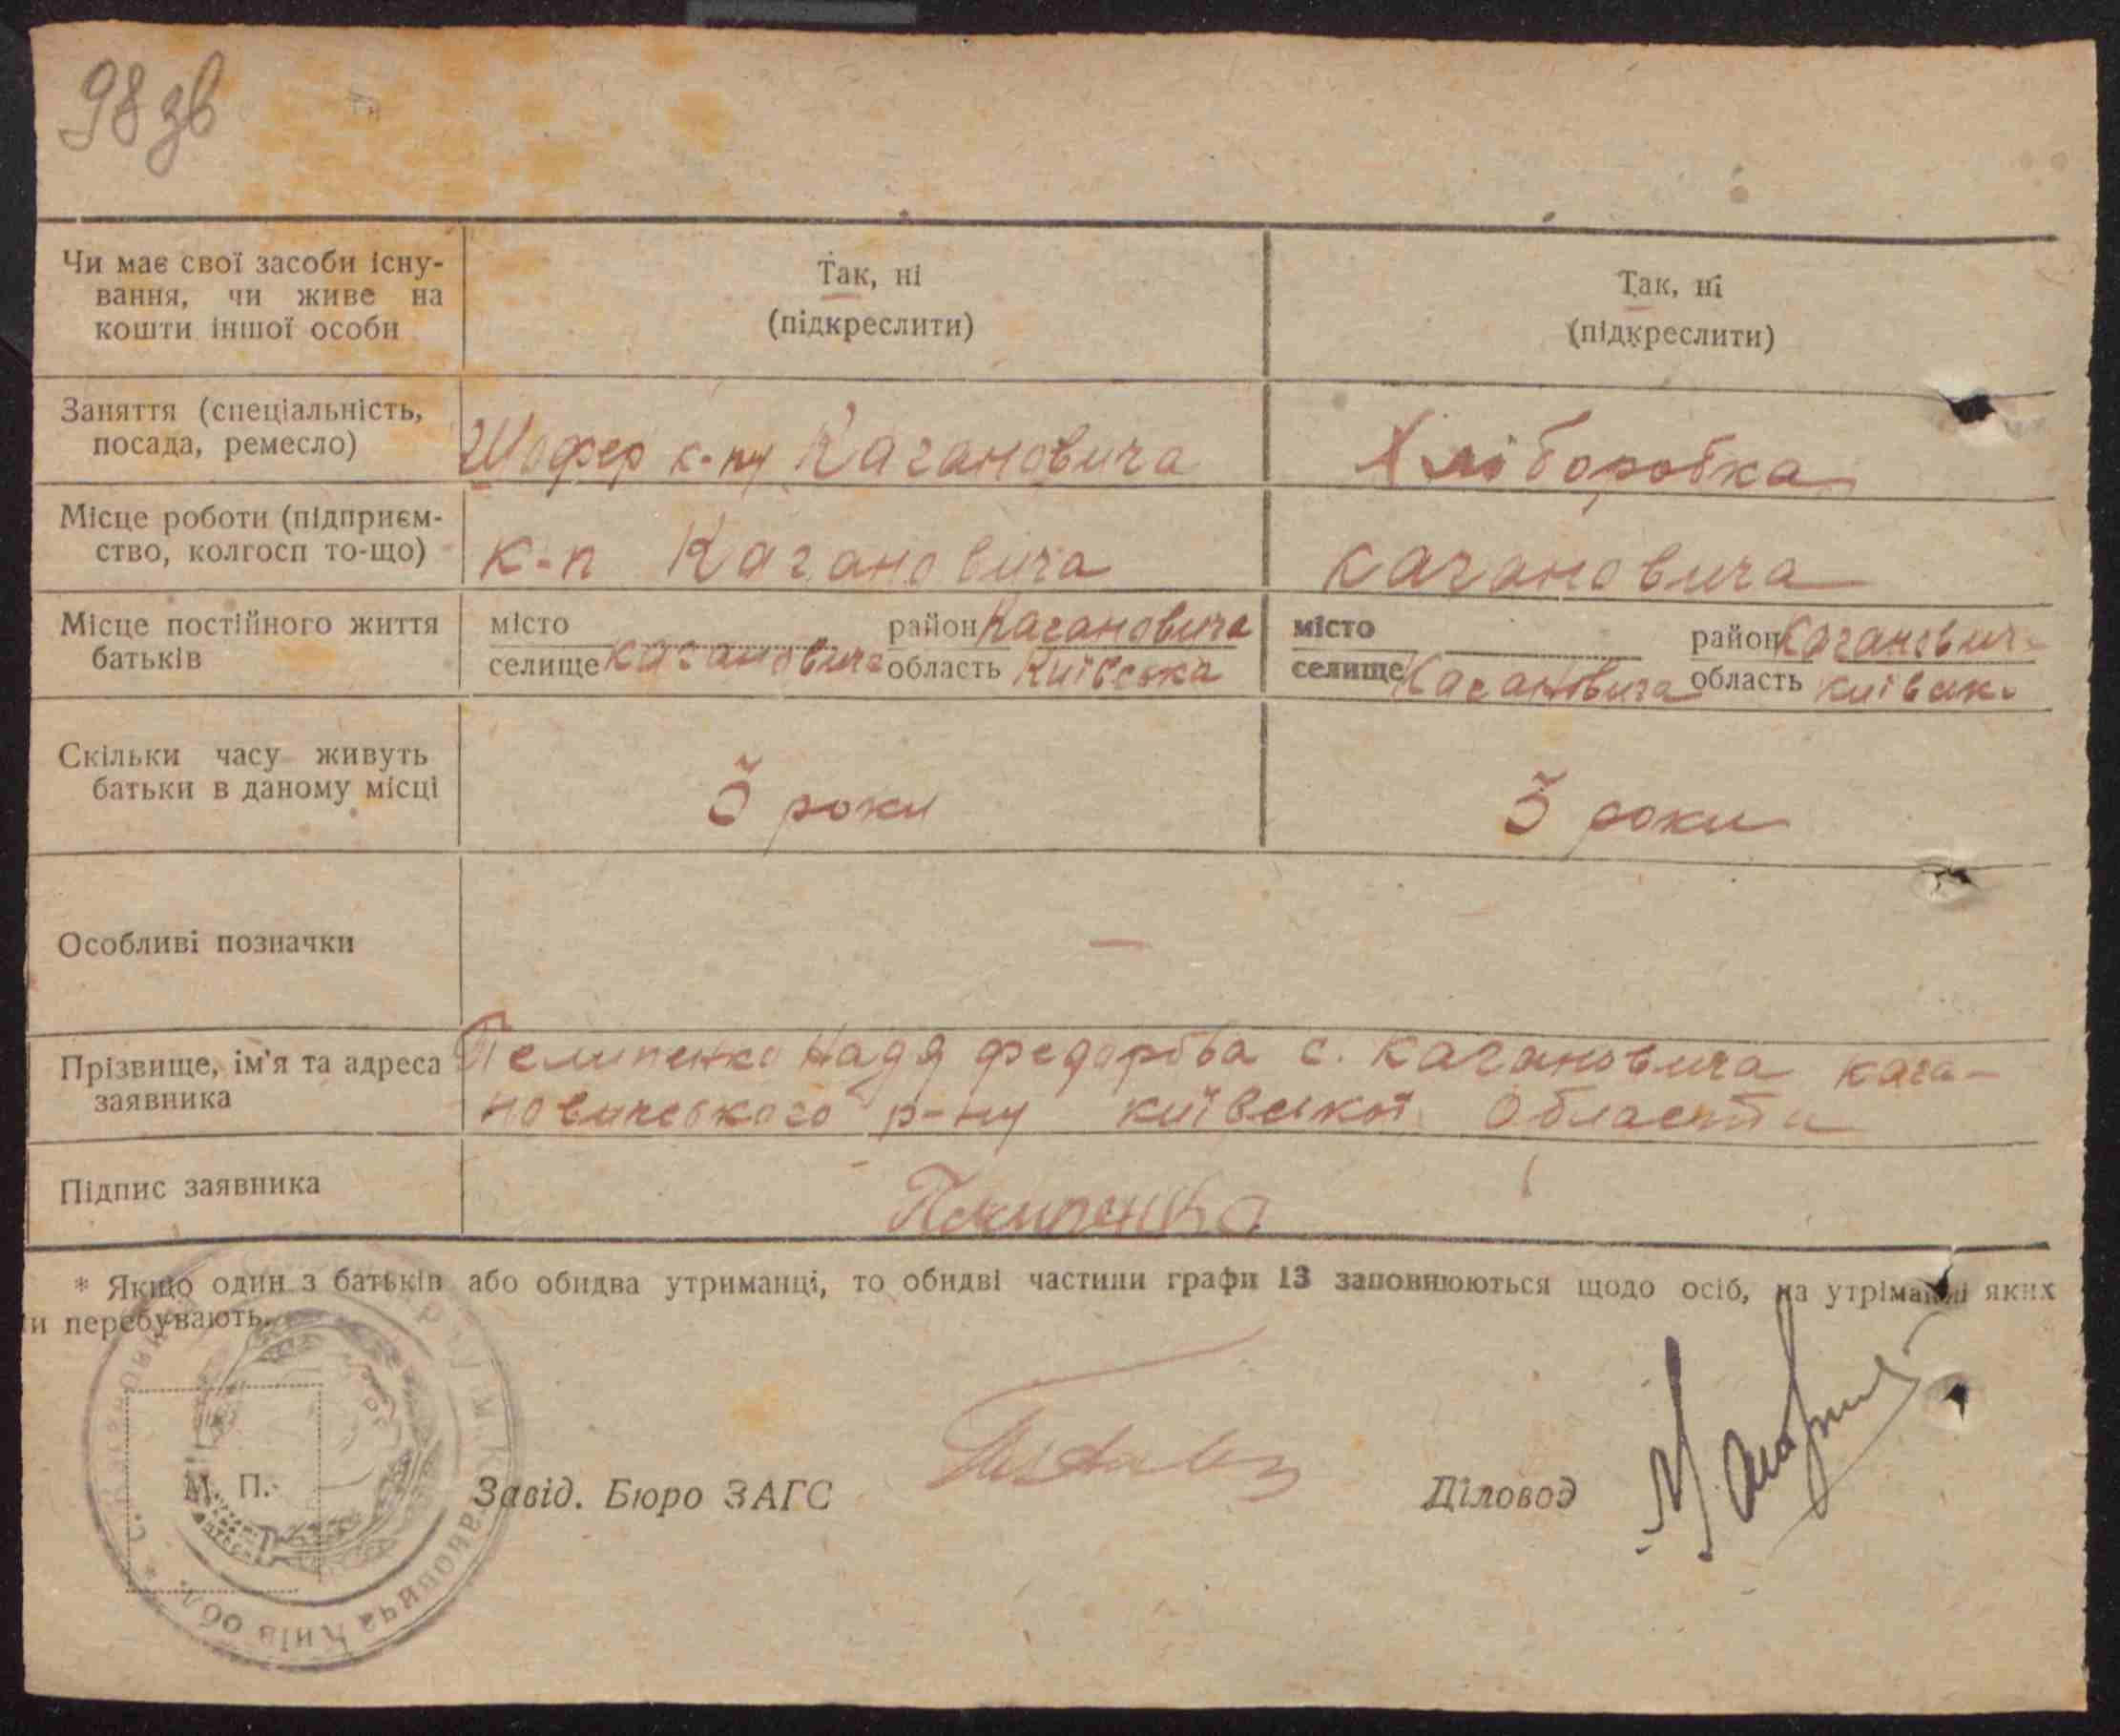 98 зв
Чи має свої засоби існу-
вання, чи живе на
кошти іншої особи
Так, ні
(підкреслити)
Так, ні
(підкреслити)
Заняття (спеціальність,
посада, ремесло)
Шофер к-пу Кагановича
Хліборобка
Місце роботи (підприєм-
ство, колгосп то-що)
к-п Кагановича
Кагановича
Місце постійного життя
батьків
місто район Кагановича
селище Кагановича область Київська
місто район Каганович-
селище Кагановича область київськ.
Скільки часу живуть
батьки в даному місці
3 роки
3 роки
Особливі позначки
—
Прізвище, ім'я та адреса
заявника
Пелипенко Надя федоровa с. Кагановича кага-
новичського р-ну київської Области
Підпис заявника
Пелипенко
* Якщо один з батьків або обидва утриманці, то обидві частини графи 13 заповнюються щодо осіб, на утріманні яких
и перебувають.
М. П.
Завід. Бюро ЗАГС
Діловод
Кагановича Київ обл.